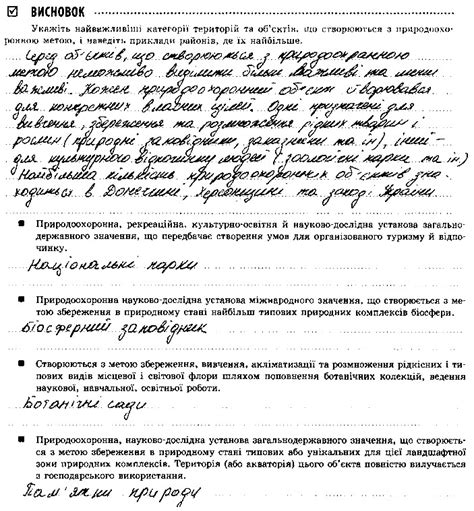 ☑ ВИСНОВОК
Укажіть найважливіші категорії територій та об'єктів, що створюються з природоохо-
ронною метою, і наведіть приклади районів, де їх найбільше.
Серед об'єктів, що створюються з природоохоронною
метою неможливо виділити більш важливі та менш
важливі. Кожен природоохоронний об'єкт створювався
для конкретних власних цілей. Одні призначені для
вивчення, збереження та розмноження рідких тварин і
рослин (природні заповідники, заказники та ін), інші –
для культурного відпочинку людей (зоологічні парки та ін)
Найбільша кількість природоохоронних об'єктів зна-
ходиться в Донеччині, Херсонщині та заході України
■ Природоохоронна, рекреаційна, культурно-освітня й науково-дослідна установа загально-
державного значення, що передбачає створення умов для організованого туризму й від-
починку.
Національні парки
■ Природоохоронна науково-дослідна установа міжнародного значення, що створюється з ме-
тою збереження в природному стані найбільш типових природних комплексів біосфери.
Біосферний заповідник
■ Створюються з метою збереження, вивчення, акліматизації та розмноження рідкісних і ти-
пових видів місцевої і світової флори шляхом поповнення ботанічних колекцій, ведення
наукової, навчальної, освітньої роботи.
Ботанічні сади
■ Природоохоронна, науково-дослідна установа загальнодержавного значення, що створюєть-
ся з метою збереження в природному стані типових або унікальних для цієї ландшафтної
зони природних комплексів. Територія (або акваторія) цього об'єкта повністю вилучається
з господарського використання.
Пам'ятки природи